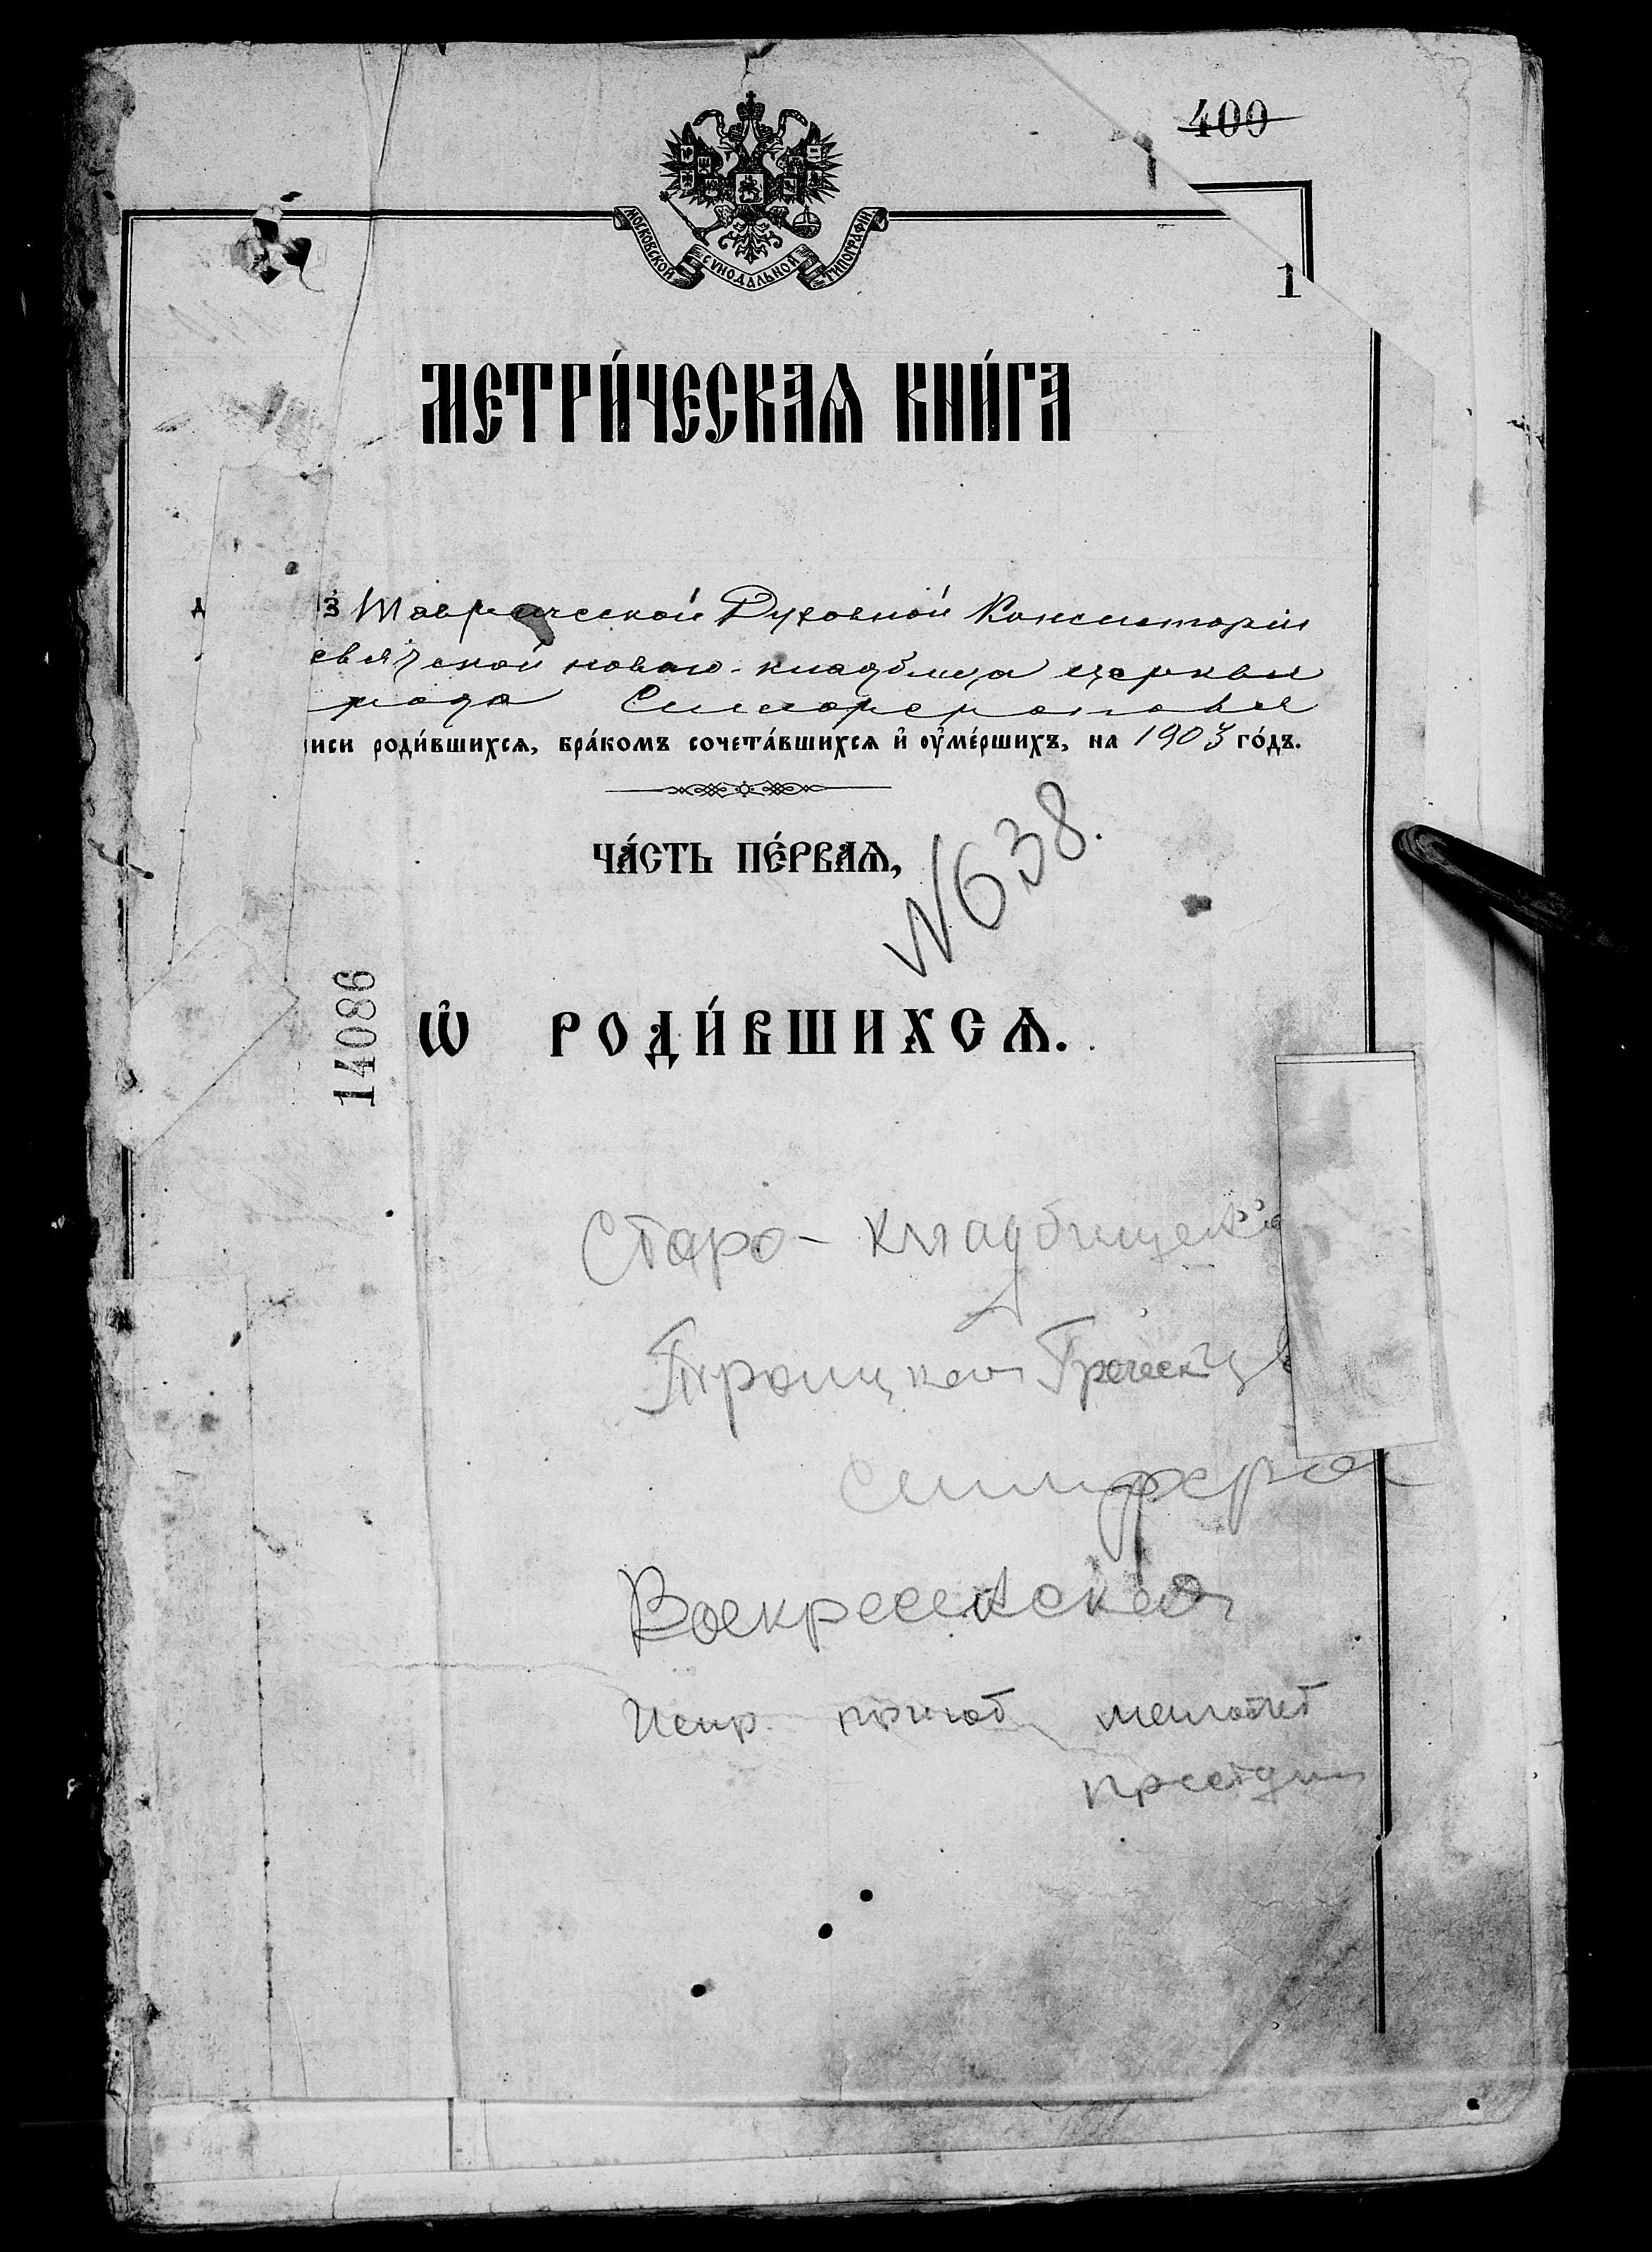 400
МОСКОВСКОЙ СУНОДАЛЬНОЙ ТИПОГРАФІИ
1
МЕТРИ́ЧЕСКАѦ КНИ́ГА
Д
З Таврической Духовной Консисторіи
новаго кладбища церкви
рода Симферополя
иси роди́вшихсѧ, бра́комъ сочета́вшихсѧ и҆ оу҆ме́ршихъ, на 1903 го́дъ.
ЧА́СТЬ ПЕ́РВАѦ,
N638.
Ѡ҆ РОДИ́ВШИХСѦ.
14086
Старо-кладбищенска
Троицкая Греческ ц
Симферо
Воскресенская
Испр.